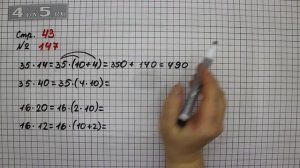 4 А 5 .ru
Стр. 43
№ 147
35·14=35·(10+4)=350+140=490
35·40=35·(4·10)=
16·20=16·(2·10)=
16·12=16·(10+2)=